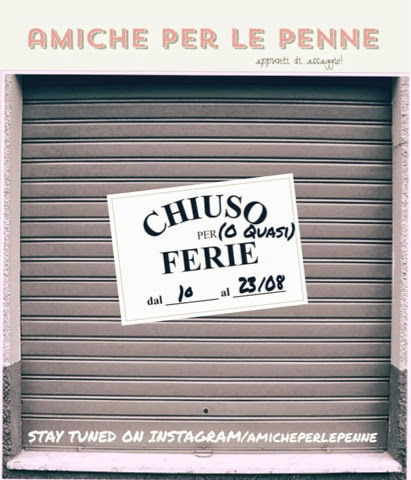 AMICHE PER LE PENNE
appunti di assaggio!
CHIUSO
PER (O QUASI)
FERIE
dal 10 al 23/08
STAY TUNED ON INSTAGRAM/AMICHEPERLEPENNE